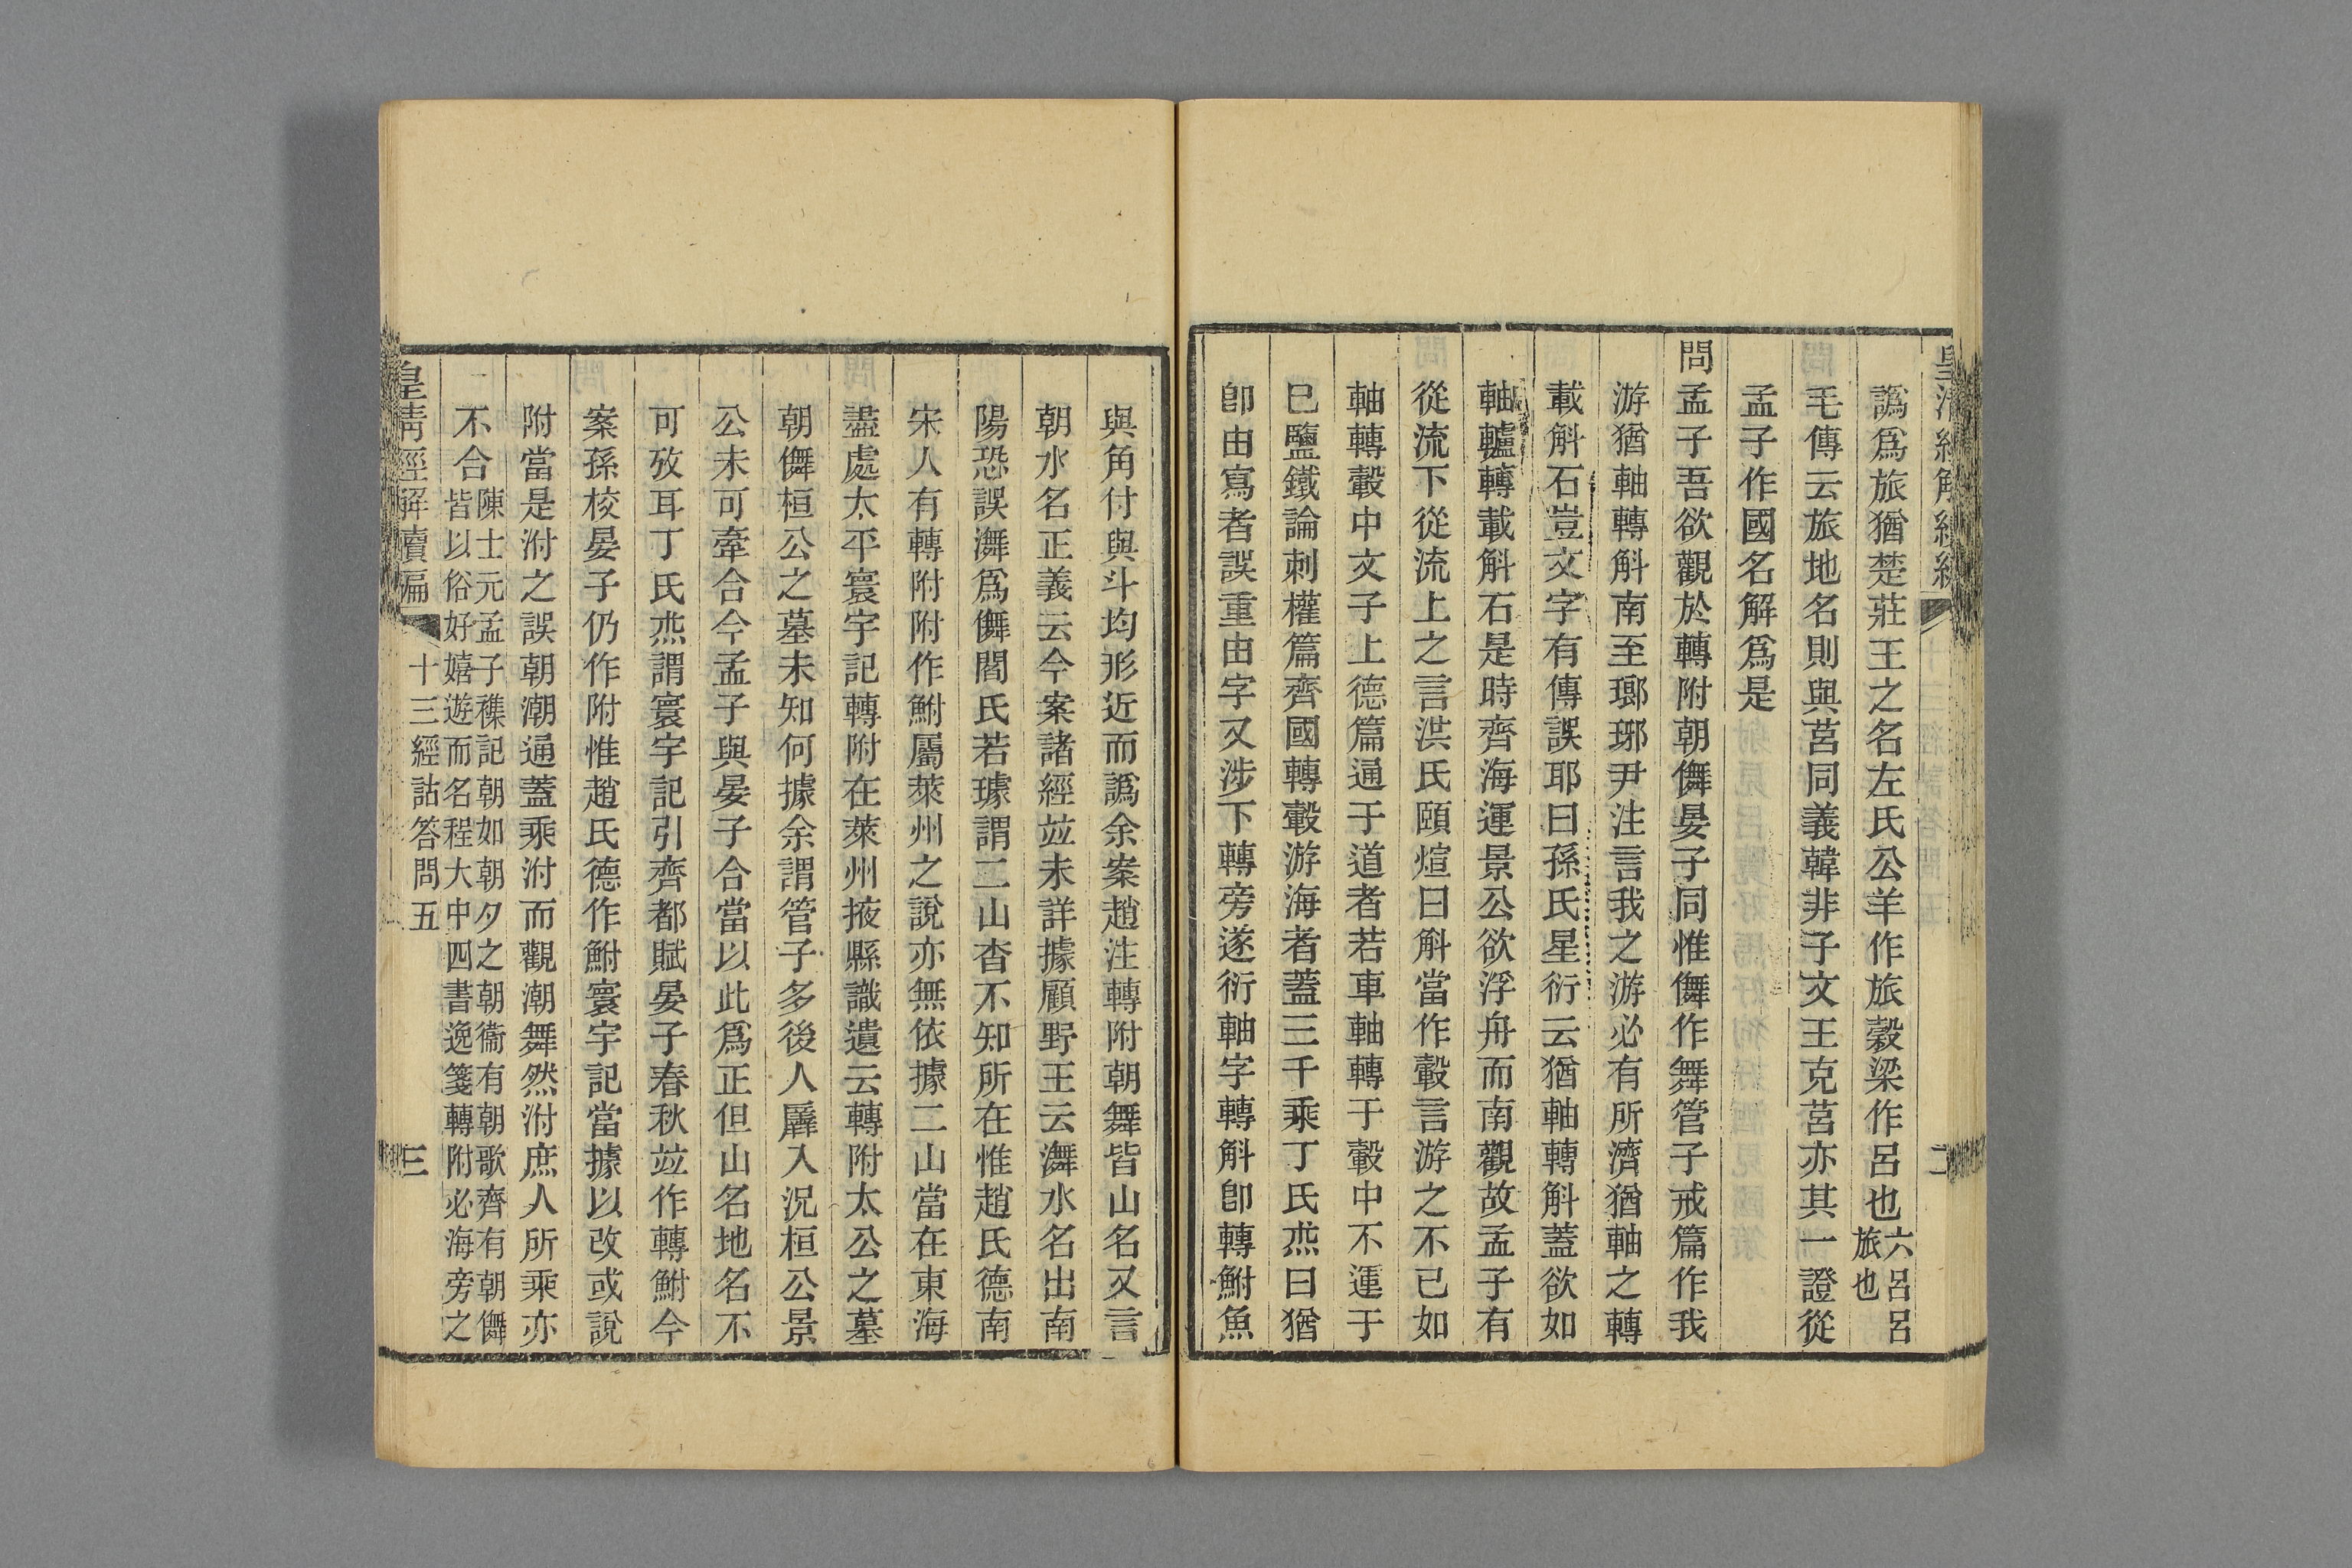 譌爲旅猶楚莊王之名左氏公羊作旅穀梁作呂也六呂呂旅也
毛傳云旅地名則與莒同義韓非子文王克莒亦其一證從
孟子作國名解爲是
問孟子吾欲觀於轉附朝儛晏子同惟儛作舞管子戒篇作我
游猶軸轉斛南至瑯琊尹注言我之游必有所濟猶軸之轉
載斛石豈文字有傳誤耶曰孫氏星衍云猶軸轉斛蓋欲如
軸轤轉載斛石是時齊海運景公欲浮舟而南觀故孟子有
從流下從流上之言洪氏頤煊曰斛當作轂言游之不已如
軸轉轂中文子上德篇通于道者若車軸轉于轂中不運于
巳鹽鐵論刺權篇齊國轉轂游海者蓋三千乘丁氏杰曰猶
卽由寫者誤重由字又涉下轉旁遂衍軸字轉斛卽轉鮒魚
與角付與斗均形近而譌余案趙注轉附朝舞皆山名又言
朝水名正義云今案諸經竝未詳據顧野王云瀰水名出南
陽恐誤瀰爲儛閻氏若璩謂二山杳不知所在惟趙氏德南
宋人有轉附附作鮒屬萊州之說亦無依據二山當在東海
盡處太平寰宇記轉附在萊州掖縣識遺云轉附太公之墓
朝儛桓公之墓未知何據余謂管子多後人羼入況桓公景
公未可牽合今孟子與晏子合當以此爲正但山名地名不
可攷耳丁氏杰謂寰宇記引齊都賦晏子春秋竝作轉鮒今
案孫校晏子仍作附惟趙氏德作鮒寰宇記當據以改或說
附當是泭之誤朝潮通蓋乘泭而觀潮舞然泭庶人所乘亦
不合陳士元孟子襍記朝如朝夕之朝衞有朝歌齊有朝儛皆以俗好嬉遊而名程大中四書逸箋轉附必海旁之
皇清經解續編
十三經詁答問五
三